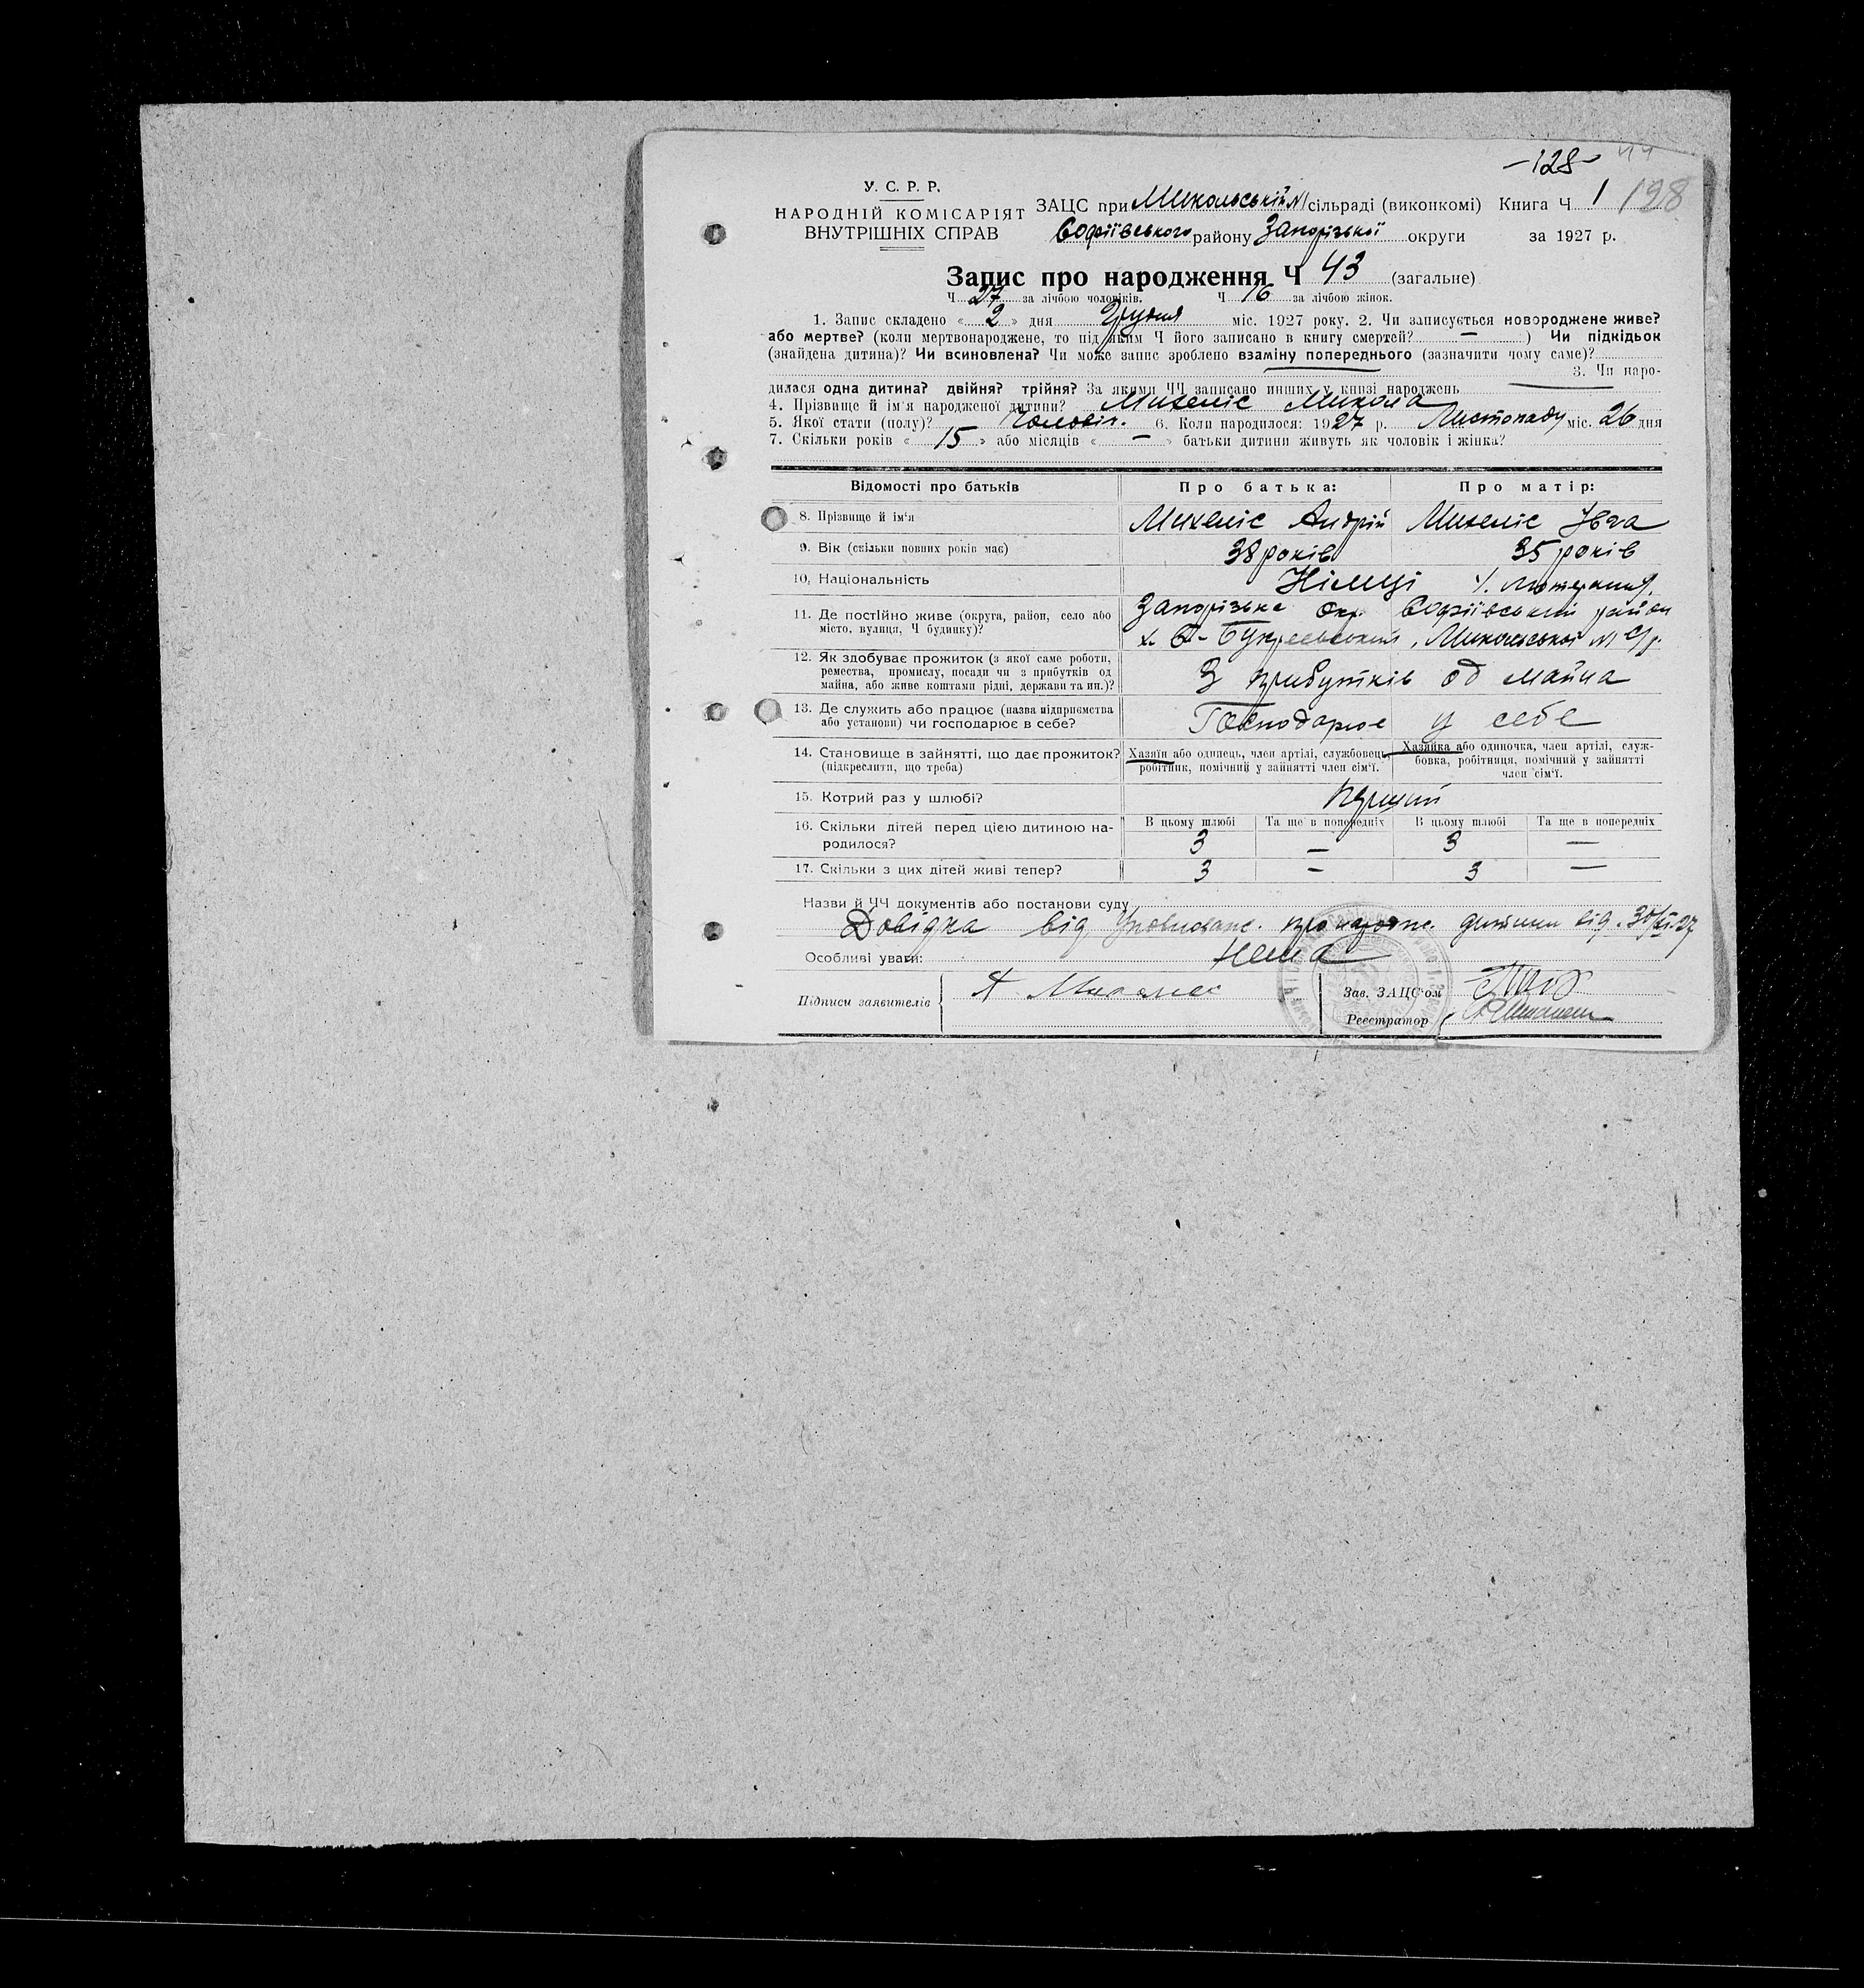 -128- 44
У. С. Р. Р.
НАРОДНІЙ КОМІСАРІЯТ
ВНУТРІШНІХ СПРАВ
ЗАЦС при Микольській №1 сільраді (виконкомі) Книга Ч 1 128
Софіївського району Запорізької округи за 1927 р.
Запис про народження Ч 43 (загальне)
Ч 27 за лічбою чоловіків. Ч 16 за лічбою жінок.
1. Запис складено « 2 » дня Грудня міс. 1927 року. 2. Чи записується новороджене живе?
або мертве? (коли мертвонароджене, то під яким Ч його записано в книгу смертей? — ) Чи підкідьок
(знайдена дитина)? Чи всиновлена? Чи може запис зроблено взаміну попереднього (зазначити чому саме)?
3. Чи наро-
дилася одна дитина? двійня? трійня? За якими ЧЧ записано инших у книзі народжень
4. Прізвище й ім'я народженої дитини? Михеліс Микола
5. Якої стати (полу)? Чоловіч. 6. Коли народилося: 1927 р. Листопаду міс. 26 дня
7. Скільки років « 15 » або місяців « — » батьки дитини живуть як чоловік і жінка?
Відомості про батьків Про батька: Про матір:
8. Прізвище й ім'я Михеліс Андрій Михеліс Івга
9. Вік (скільки повних років має) 38 років 35 років
10, Національність Німці
11. Де постійно живе (округа, район, село або Запорізька Окр. Софіївський район
місто, вулиця, Ч будинку)? х. Микольської №1 с/р.
12. Як здобуває прожиток (з якої саме роботи,
ремества, промислу, посади чи з прибутків од
майна, або живе коштами рідні, держави та ин.)? З прибутків од майна
13. Де служить або працює (назва підприємства
або установи) чи господарює в себе? Господарює у себе
14. Становище в зайнятті, що дає прожиток? Хазяїн або одинець, член артілі, службовець, Хазяйка або одиночка, член артілі, служ-
(підкреслити, що треба) робітник, помічний у зайнятті член сім'ї. бовка, робітниця, помічний у зайнятті
член сім'ї.
15. Котрий раз у шлюбі? перший
16. Скільки дітей перед цією дитиною на- В цьому шлюбі Та ще в попередніх В цьому шлюбі Та ще в попередніх
родилося? 3 — 3 —
17. Скільки з цих дітей живі тепер? 3 — 3 —
Назви й ЧЧ документів або постанови суду
Довідка від Уповноваж. про народж. дитини від. 30/XI-27
Особливі уваги: Нема
Підписи заявителів А Зав. ЗАЦС'ом
Реєстратор